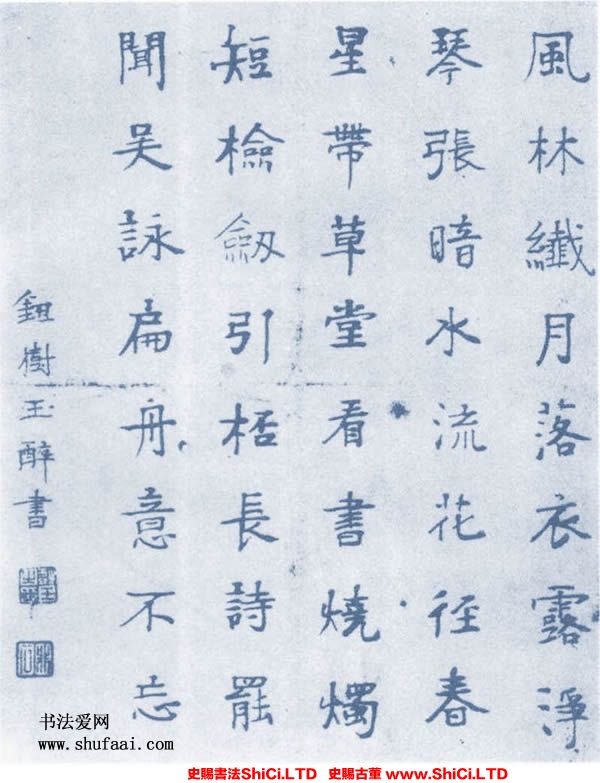 風林纖月落衣露淨
琴張暗水流花径春
星帶草堂看書燒燭
短檢劔引桮長詩罷
聞吴詠扁舟意不忘
鈕樹玉醉書
书法爱网
www.shufaai.com
史賜書法ShiCi.LTD 史賜古董 www.ShiCi.LTD